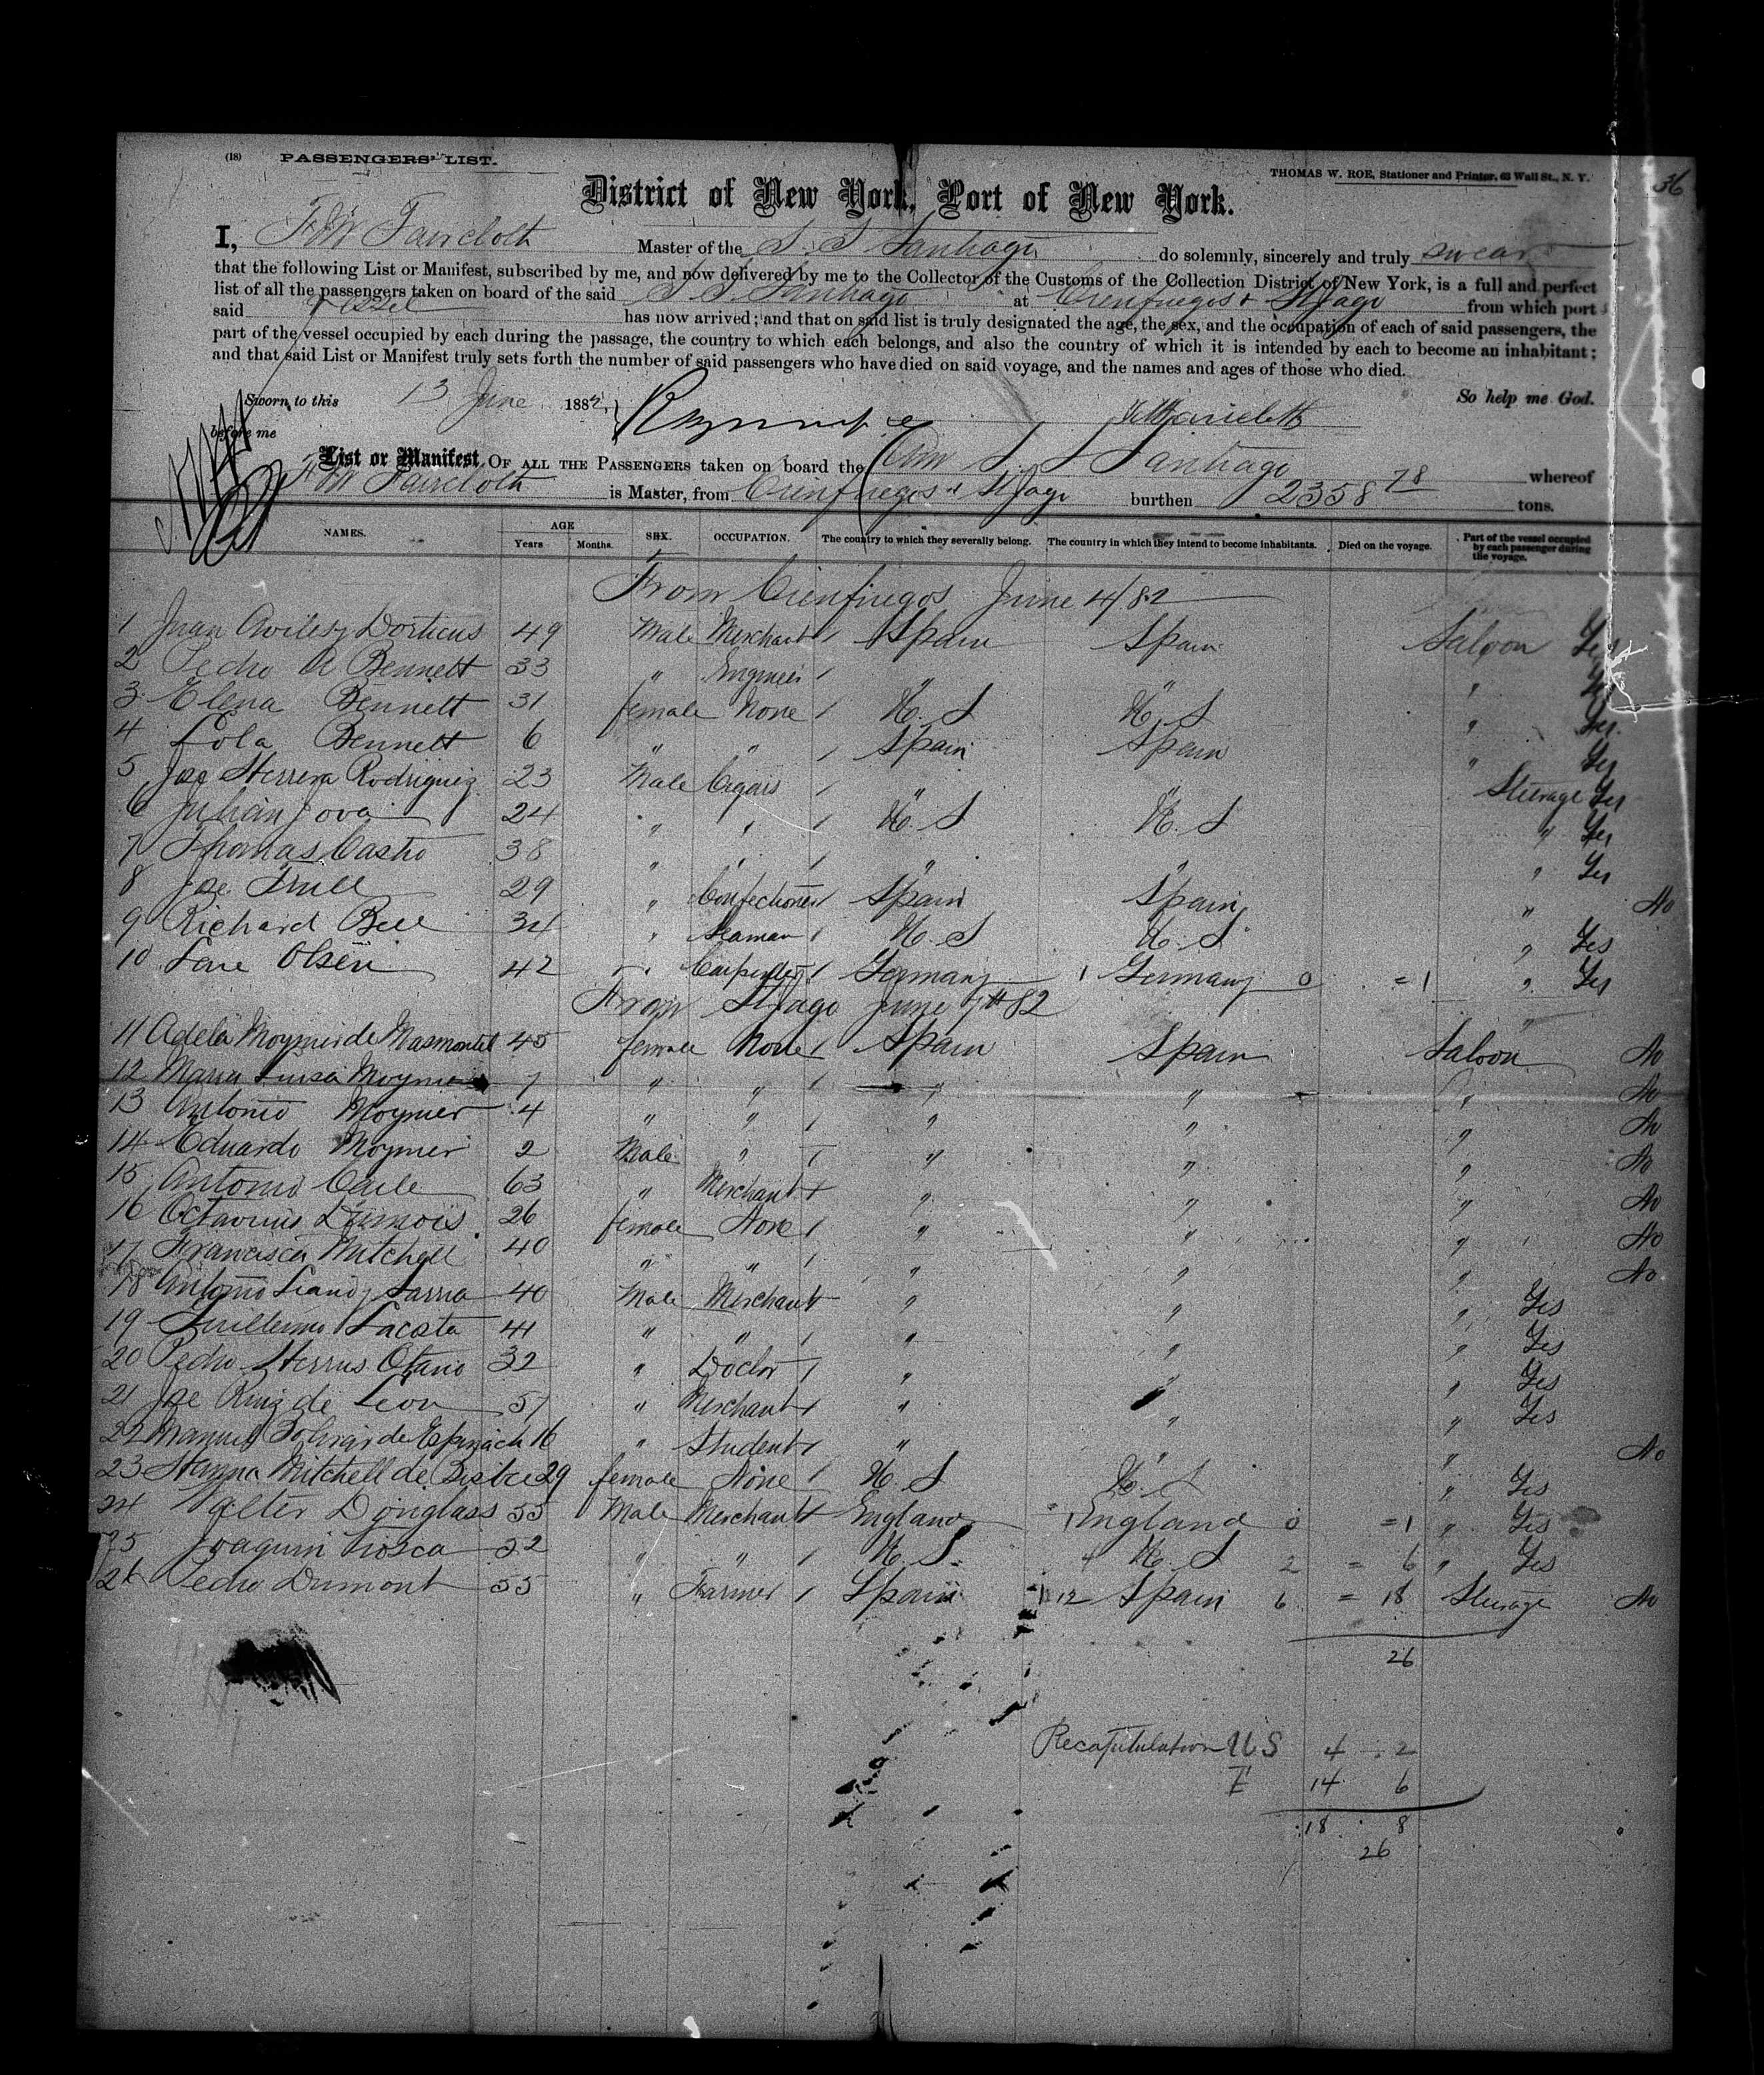 (18) PASSENGERS' LIST.
THOMAS W. ROE, Stationer and Printer, 63 Wall St., N. Y.
36
District of New York, Port of New York.
I, F M Faircloth Master of the S. S Santiago do solemnly, sincerely and truly swear
that the following List or Manifest, subscribed by me, and now delivered by me to the Collector of the Customs of the Collection District of New York, is a full and perfect
list of all the passengers taken on board of the said S S. Santiago at Cienfuegos & St Jago from which port
said vessel has now arrived; and that on said list is truly designated the age, the sex, and the occupation of each of said passengers, the
part of the vessel occupied by each during the passage, the country to which each belongs, and also the country of which it is intended by each to become an inhabitant;
and that said List or Manifest truly sets forth the number of said passengers who have died on said voyage, and the names and ages of those who died.
Sworn to this 13 June 1882, So help me God.
before me
List or Manifest, OF ALL THE PASSENGERS taken on board the Am S. S Santiago whereof
F M Faircloth is Master, from Cienfuegos & St Jago burthen 2358 78 tons.
NAMES. AGE Years Months. SEX. OCCUPATION. The country to which they severally belong. The country in which they intend to become inhabitants. Died on the voyage. Part of the vessel occupied by each passenger during the voyage.
From Cienfuegos June 4/82
1 Juan Aviles y Dorticus 49 Male Merchant / Spain Spain Saloon Yes
2 Pedro A Bennett 33 " Engineer / " " " Yes
3 Elena Bennett 31 female None / U. S U. S " Yes
4 Lola Bennett 6 " " / Spain Spain " Yes
5 Jose Herrera Rodriguez 23 Male Cigars / " " Steerage Yes
6 Julian Jova 24 " " / U. S U. S " Yes
7 Thomas Castro 38 " " / " " " Yes
8 Jose Trull 29 " Confectioner / Spain Spain " No
9 Richard Bell 34 " Seaman / U. S U. S " Yes
10 Olsen 42 " Carpenter / Germany 1 Germany 0 = 1 " Yes
From St Jago June 7th 82
11 Adela Moynier de Masmontel 45 female None / Spain Spain Saloon No
12 Maria Luisa Moynier 7 " " / " " " No
13 Antonio Moynier 4 " " / " " " No
14 Eduardo Moynier 2 Male " / " " " No
15 Antonio 63 " Merchant / " " " No
16 Dumois 26 female None / " " " No
17 Francisca Mitchell 40 " " / " " " No
18 Antonio 40 Male Merchant / " " " Yes
19 Guillermo Lacosta 41 " " / " " " Yes
20 Pedro Otano 32 " Doctor / " " " Yes
21 Jose Ruiz de Leon 51 " Merchant / " " " Yes
22 Manuel de Espinach 16 " Student / " " " No
23 Mitchell de 29 female None / U. S U. S " Yes
24 Douglass 55 Male Merchant / England 1 England 0 = 1 " Yes
25 Joaquin Tosca 52 " " / U. S. 4 U. S 2 = 6 " Yes
26 Pedro Dumont 55 " Farmer / Spain 12 Spain 6 = 18 Steerage No
26
Recapitulation U S 4 2
14 6
18 8
26